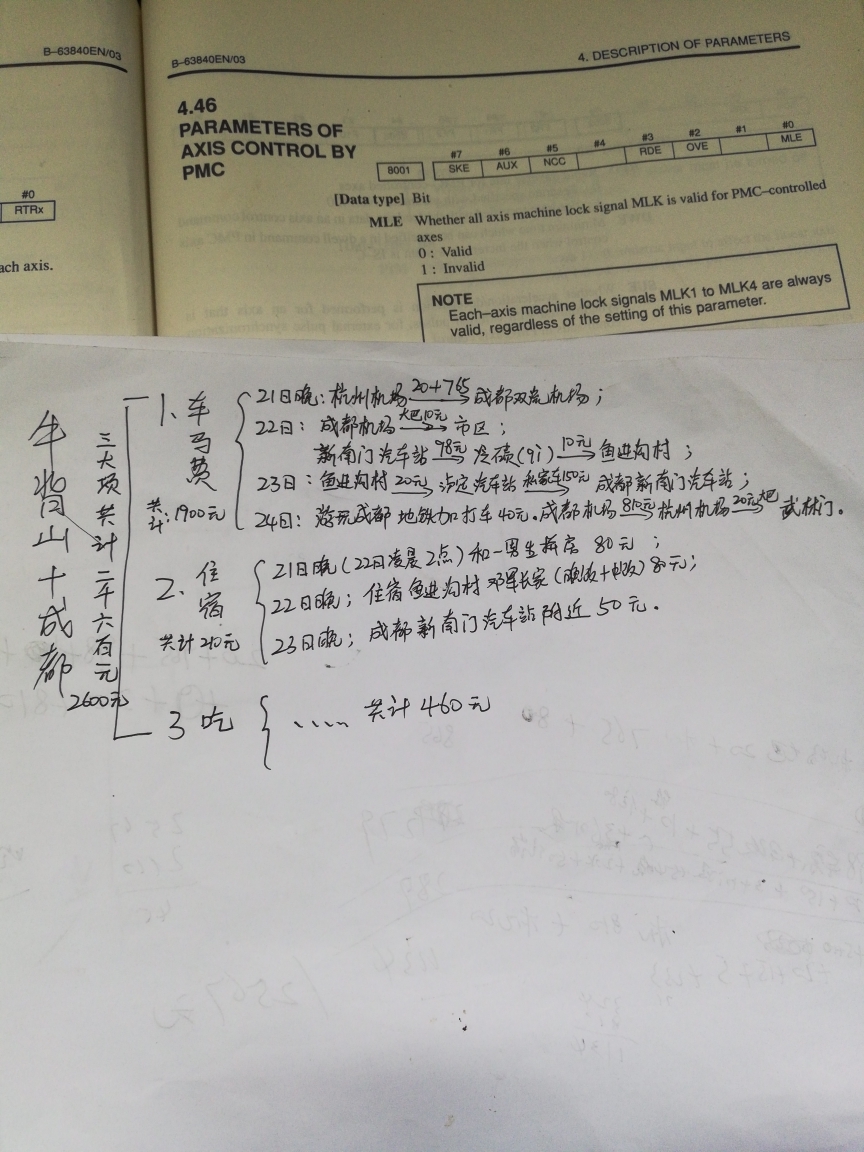 B–63840EN/03
#0
RTRx
ach axis.
B–63840EN/03
4. DESCRIPTION OF PARAMETERS
4.46
PARAMETERS OF
AXIS CONTROL BY
PMC
#7 #6 #5 #4 #3 #2 #1 #0
8001 SKE AUX NCC RDE OVE MLE
[Data type] Bit
MLE Whether all axis machine lock signal MLK is valid for PMC–controlled
axes
0 : Valid
1 : Invalid
NOTE
Each–axis machine lock signals MLK1 to MLK4 are always
valid, regardless of the setting of this parameter.
牛背山十成都
三大项共计二千六百元
2600元
1、车马费
共计:1900元
21日晚:杭州机场 20+765 成都双流机场;
22日:成都机场 大巴10元 市区;
新南门汽车站 98元 冷碛(qi) 10元 鱼进沟村;
23日:鱼进沟村 20元 泸定汽车站 私家车150元 成都新南门汽车站;
24日:游玩成都 地铁加打车40元.成都机场 810元 杭州机场 20元大巴 武林门。
2、住宿
共计210元
21日晚(22日凌晨2点)和一男生拼房 80元;
22日晚;住宿鱼进沟村邓军长家(晚饭+早饭)80元;
23日晚;成都新南门汽车站附近50元.
3 吃
..... 共计460元